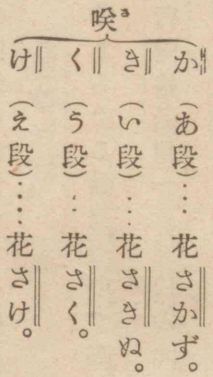 咲さ
か（あ段）‥‥花さかず。
き（い段）‥‥花さきぬ。
く（う段）‥‥花さく。
け（え段）‥‥花さけ。